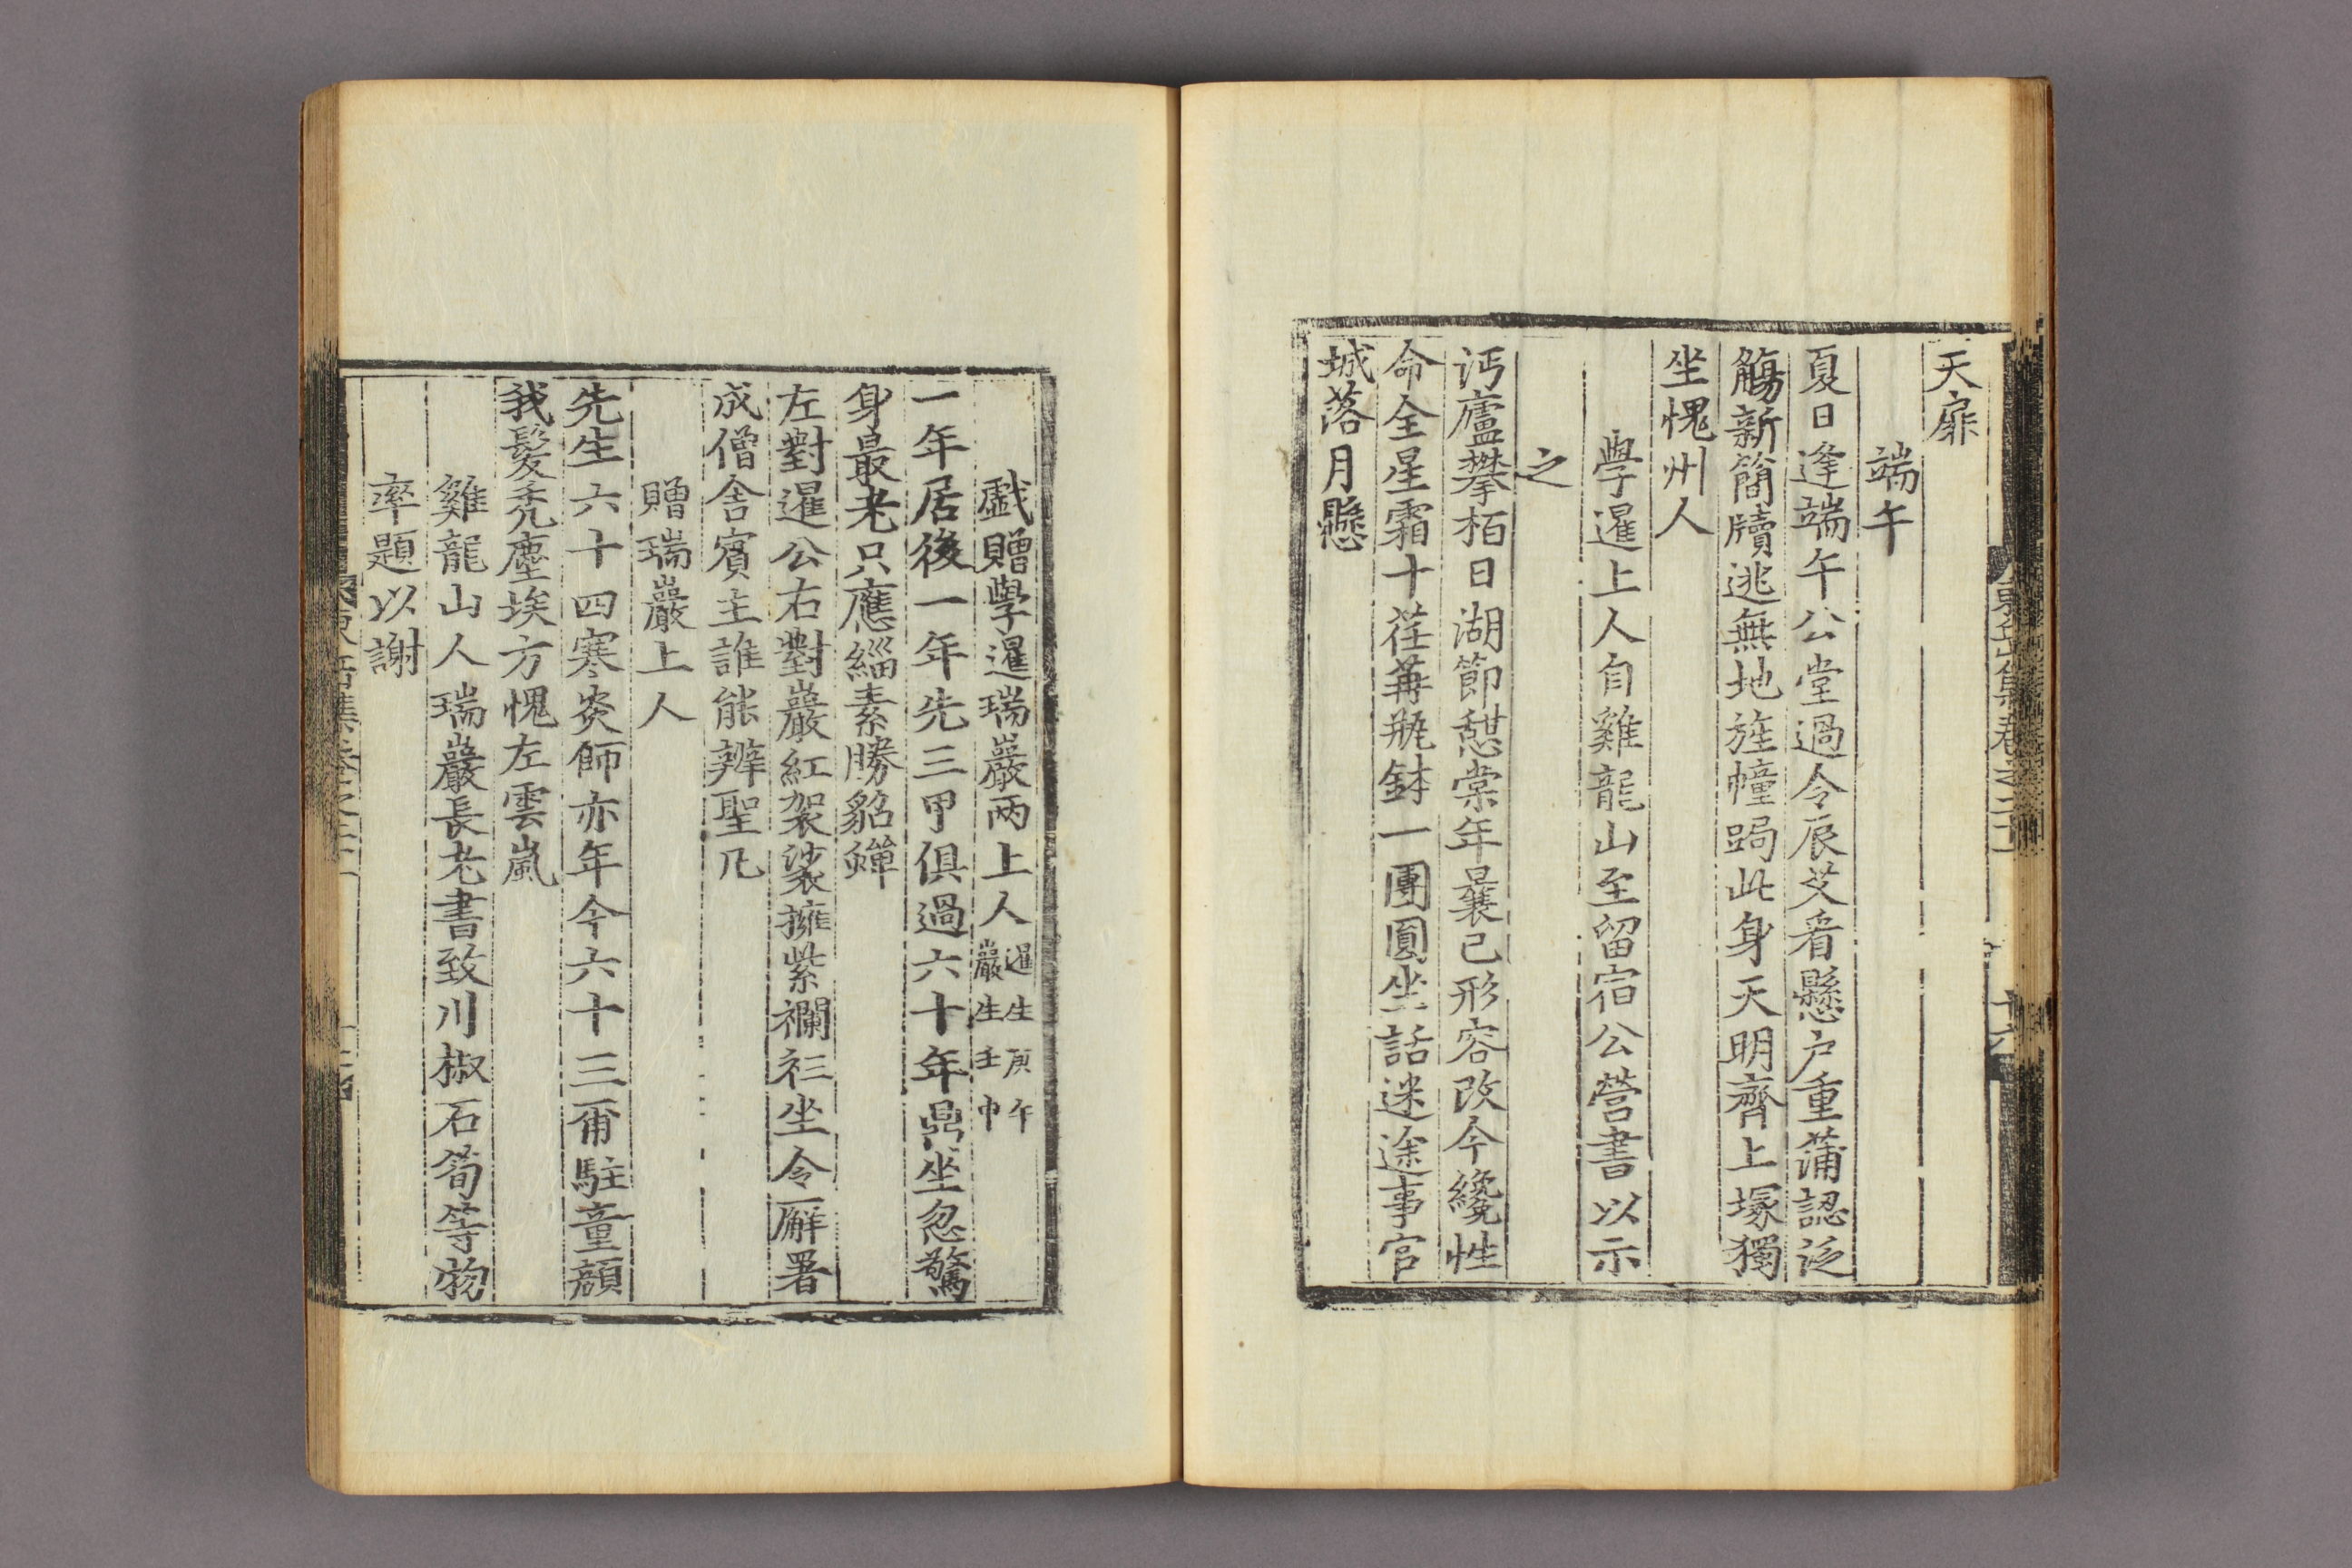 天扉
端午
夏日逢端午公堂過令辰艾看懸户重蒲認泛
觴新簡牘逃無地旌幢跼此身天明齊上塚獨
坐愧州人
學暹上人自雞龍山至留宿公營書以示
之
沔廬攀栢日湖節憇棠年曩已形容改今纔性
命全星霜十荏苒瓶鉢一團圓坐話迷途事官
城落月懸
戱贈學暹瑞巖兩上人暹生庚午巖生壬申
一年居後一年先三甲俱過六十年鼎坐忽驚
身最老只應緇素勝貂蟬
左對暹公右對巖紅袈裟擁紫襴衫坐令廨署
成僧舍賓主誰能辨聖凡
贈瑞巖上人
先生六十四寒炎師亦年今六十三爾駐童顔
我髮秃塵埃方愧左雲嵐
雞龍山人瑞巖長老書致川椒石筍等物
率題以謝